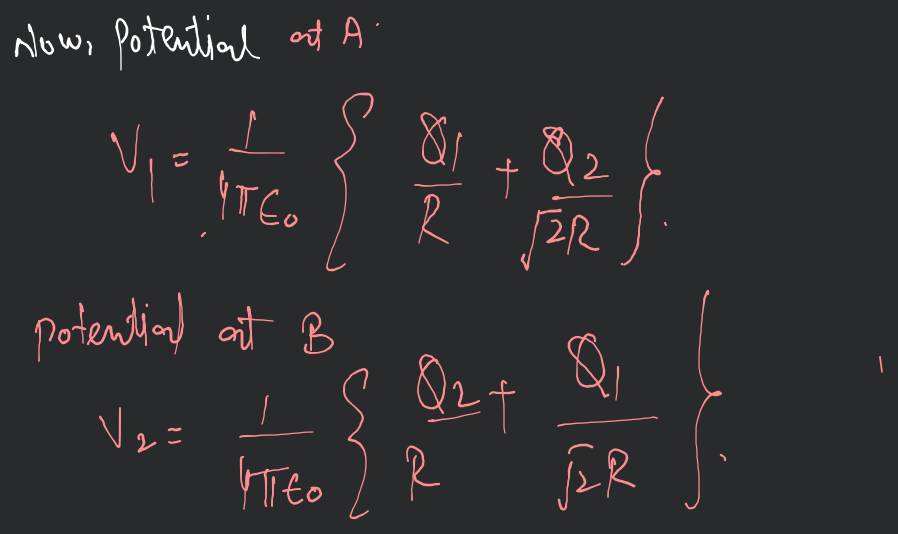 Now, Potential at A.
V₁ = 1/4πε₀ { Q₁/R + Q₂/√2R }.
Potential at B
V₂ = 1/4πε₀ { Q₂/R + Q₁/√2R }.